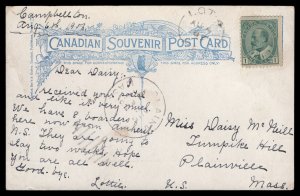 Campbellton.
Aug 6th 1908
CANADIAN SOUVENIR POST CARD
Dear Daisy,
I
received your postal
and like it very much
We have 8 boarders
here now from Amherst
N.S. They are going to
stay two weeks. Hope
you are all well.
Good-bye.
Lottie.
Miss Daisy McNeill
Turnpike Hill
Plainville
Mass.
U.S.